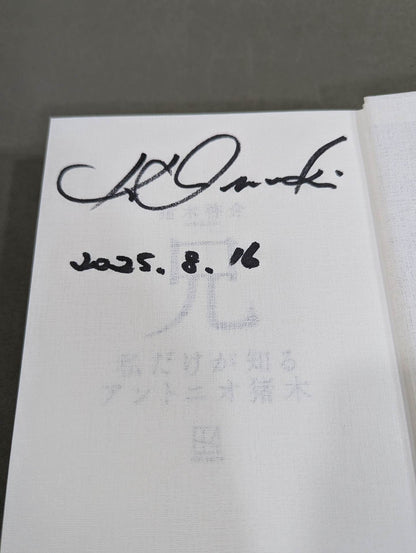 K Inoki
2025. 8. 16
猪木啓介
兄
私だけが知る
アントニオ猪木